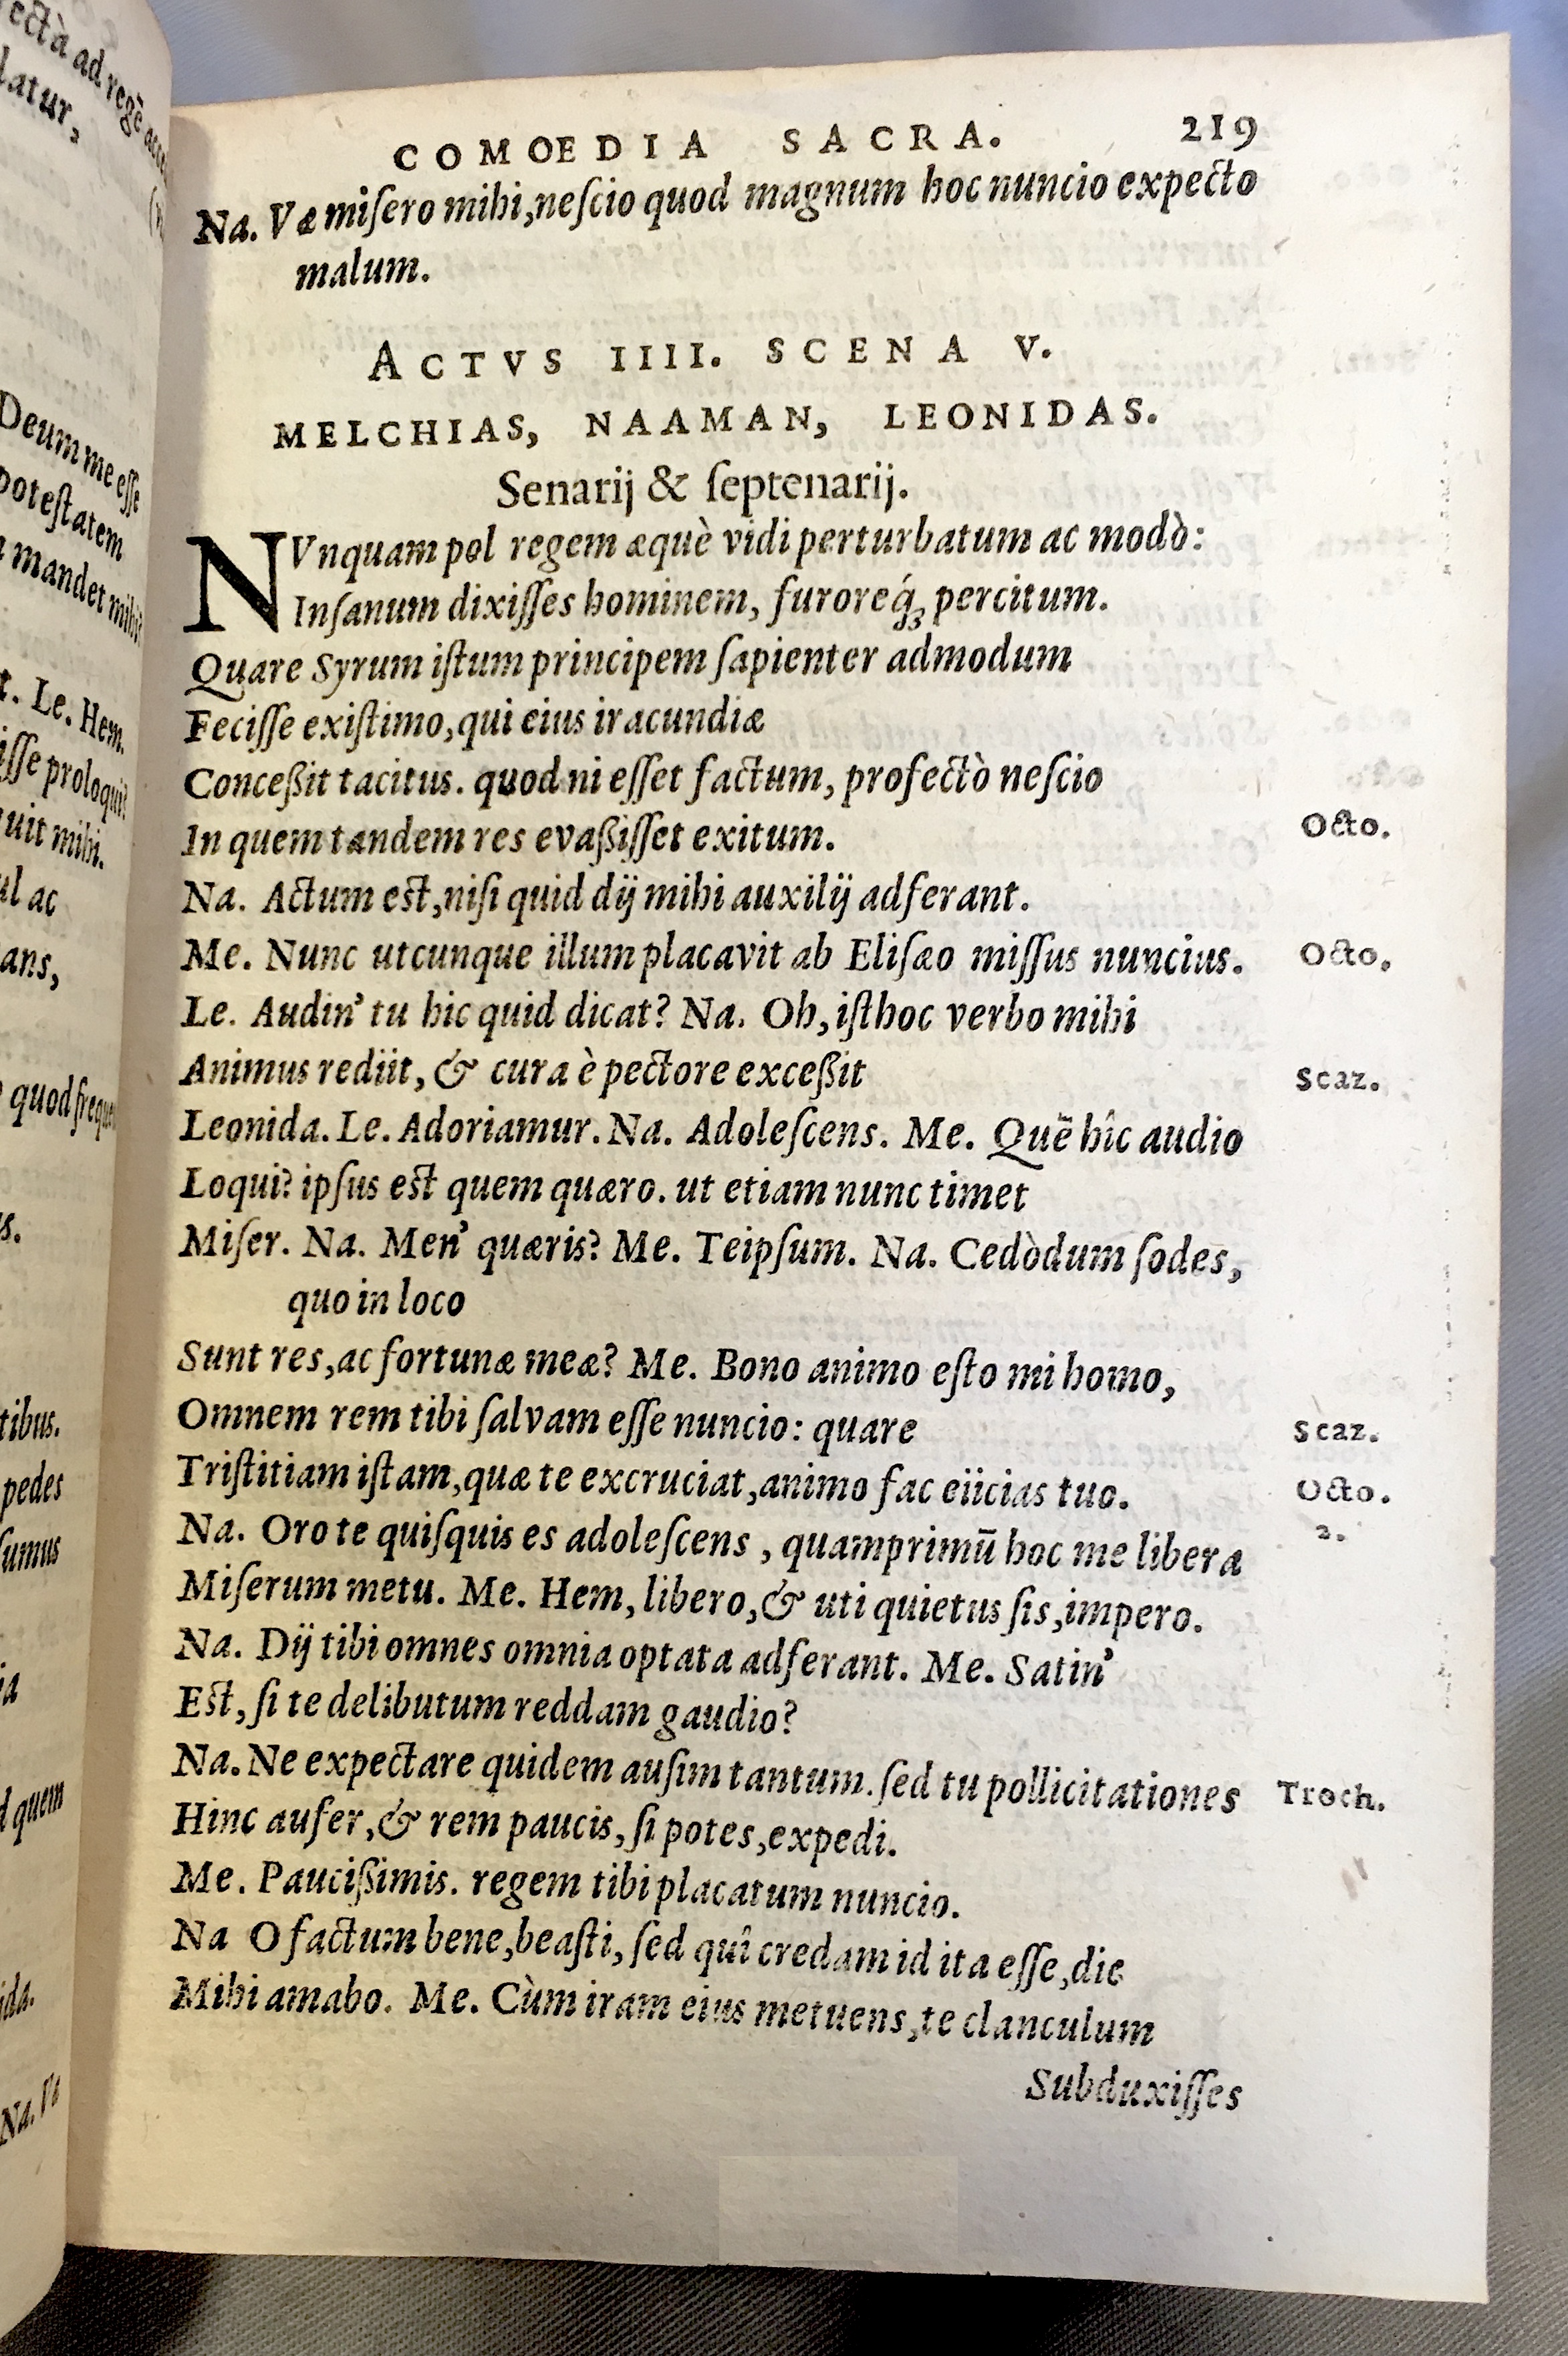 ectà ad regẽ
latur,
Deum me eſſe
poteſtatem
mandet mihi?
t. Le. Hem.
iſſe proloqui?
uit mihi.
ul ac
ans,
quod freque
s.
tibus.
pedes
ſumus
ia
d quem
ida.
Na. Væ
COMOEDIA SACRA. 219
Na. Væ miſero mihi, neſcio quod magnum hoc nuncio expecto
malum.
ACTVS IIII. SCENA V.
MELCHIAS, NAAMAN, LEONIDAS.
Senarij & ſeptenarij.
NVnquam pol regem æquè vidi perturbatum ac modò:
Inſanum dixiſſes hominem, furoreq́; percitum.
Quare Syrum iſtum principem ſapienter admodum
Feciſſe exiſtimo, qui eius iracundiæ
Conceßit tacitus. quod ni eſſet factum, profectò neſcio
In quem tandem res evaßiſſet exitum. Octo.
Na. Actum eſt, niſi quid dij mihi auxilij adferant.
Me. Nunc utcunque illum placavit ab Eliſæo miſſus nuncius. Octo.
Le. Audin’ tu hic quid dicat? Na. Oh, iſthoc verbo mihi
Animus rediit, & cura è pectore exceßit Scaz.
Leonida. Le. Adoriamur. Na. Adoleſcens. Me. Quẽ hîc audio
Loqui? ipſus eſt quem quæro. ut etiam nunc timet
Miſer. Na. Men’ quæris? Me. Teipſum. Na. Cedòdum ſodes,
quo in loco
Sunt res, ac fortunæ meæ? Me. Bono animo eſto mi homo,
Omnem rem tibi ſalvam eſſe nuncio: quare Scaz.
Triſtitiam iſtam, quæ te excruciat, animo fac eiicias tuo. Octo.
Na. Oro te quiſquis es adoleſcens, quamprimũ hoc me libera 2.
Miſerum metu. Me. Hem, libero, & uti quietus ſis, impero.
Na. Dij tibi omnes omnia optata adferant. Me. Satin’
Eſt, ſi te delibutum reddam gaudio?
Na. Ne expectare quidem auſim tantum. ſed tu pollicitationes Troch.
Hinc aufer, & rem paucis, ſi potes, expedi.
Me. Paucißimis. regem tibi placatum nuncio.
Na O factum bene, beaſti, ſed quî credam id ita eſſe, dic
Mihi amabo. Me. Cùm iram eius metuens, te clanculum
Subduxiſſes